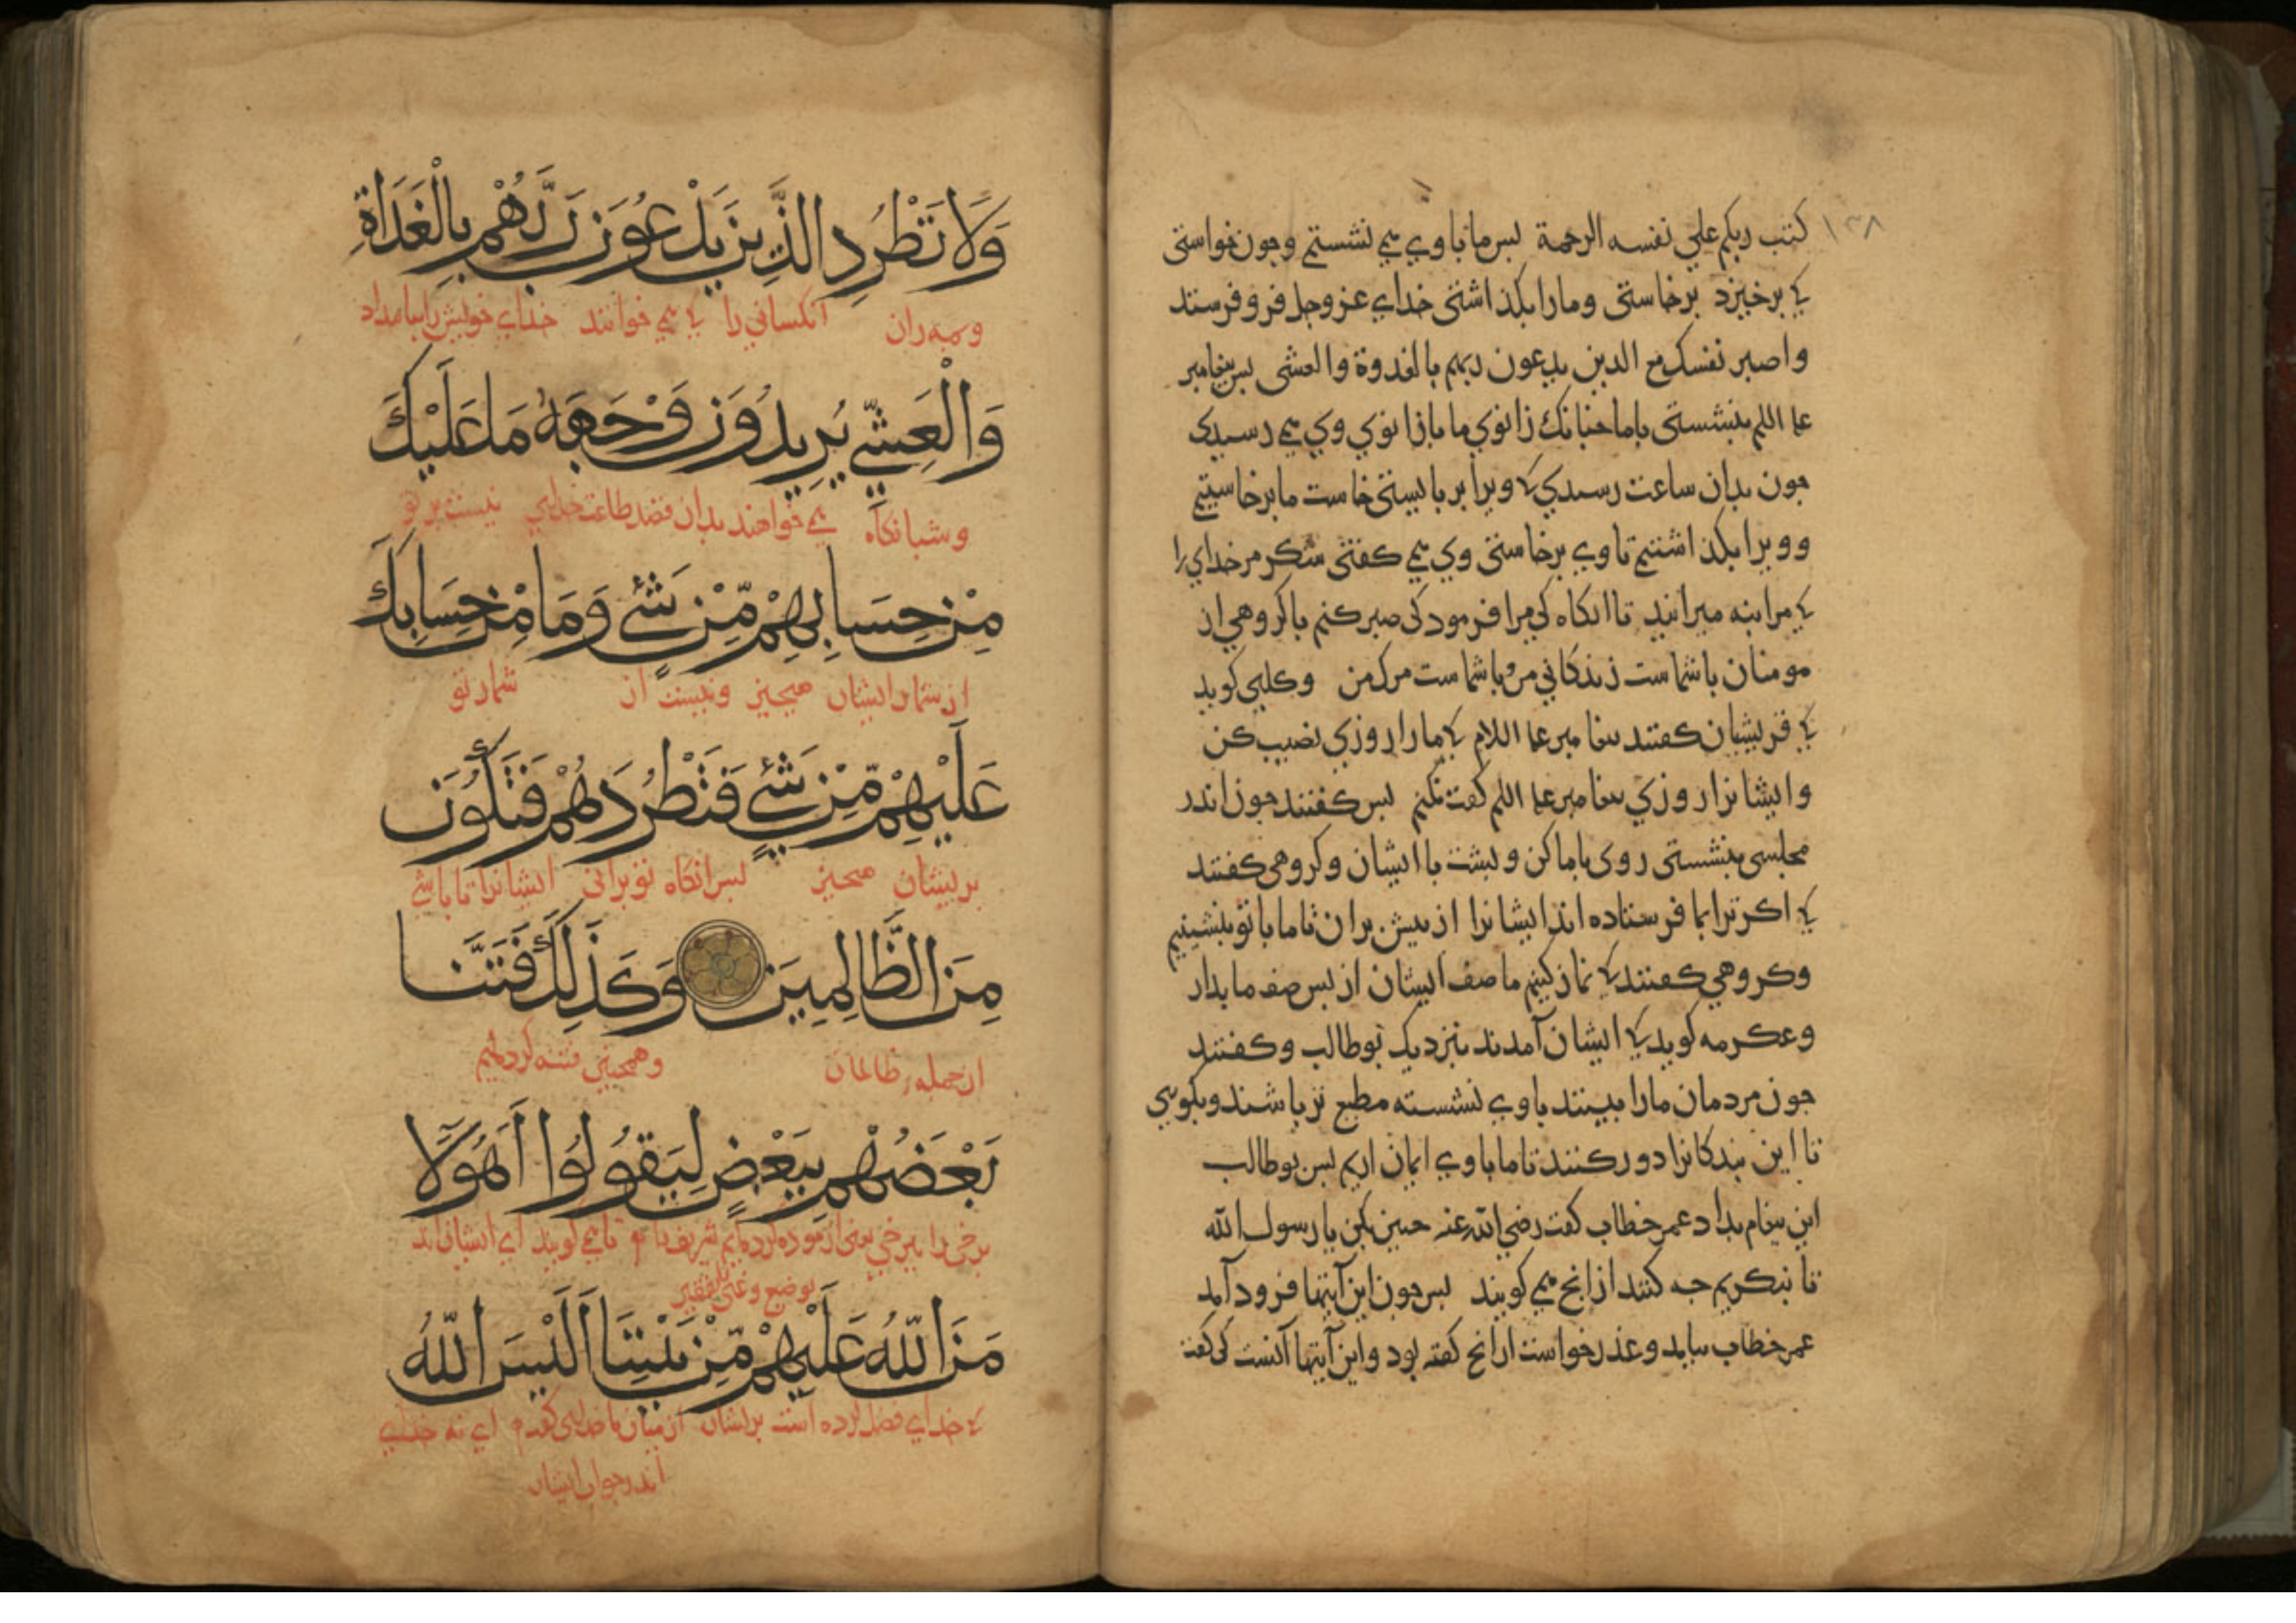 ۱۳۸
كتب ربكم علي نفسه الرحمة لبس ما باوي مي نشستم وجون خواستي
كه برخيزد برخاستي ومارا بكذاشتي خداي عزوجل فرو فرستند
واصبر نفسك مع الدين يدعون ربهم بالغدوة والعشى بس بيغامبر
بنشستي باما جنانك زانوي ما بازانوي وي مي رسيدي
جون بدان ساعت رسيدي كه ويرا بر بايستي خاست ما برخاستيم
وويرا بكذاشتيم تا وي برخاستي وي مي كفتي شكر مر خداي را
كه مرا بنه ميرانيد تا انكاه كي مرا فرمود كي صبر كنم با كروهي از
مومنان با شماست زندكاني من وبا شماست مرك من وكلبي كويد
كه قريشيان كفتند بيغامبر كه مارا روزي نصيب كن
وايشانرا روزي بيغامبر كفت نكنم بس كفتند جون اندر
مجلسي بنشستي روي باما كن وبشت با ايشان وكروهي كفتند
كه اكر ترا بما فرستاده اند ايشانرا از بيش بران تا ما با تو بنشينيم
وكروهي كفتند كه نماز كنيم ما صف ايشان از بس صف ما بدار
وعكرمه كويد كه ايشان آمدند بنزديك بوطالب وكفتند
جون مردمان مارا ببينند باوي نشسته مطيع تر باشند وبكوي
تا اين بندكانرا دور كنند تا ما باوي ايمان اريم بس بوطالب
اين بيغام بداد عمر خطاب كفت رضي الله عنه جنين بكن يا رسول الله
تا بنكريم جه كنند از انج مي كويند بس جون اين آيتها فرود آمد
عمر خطاب بيامد وعذر خواست از انج كفته بود واين آيتها آنست كي كفت
وَلَا تَطْرُدِ الَّذِينَ يَدْعُونَ رَبَّهُمْ بِالْغَدَاةِ
ومه ران آنكساني را كه مي خوانند خداي خويش را بامداد
وَالْعَشِيِّ يُرِيدُونَ وَجْهَهُ مَا عَلَيْكَ
وشبانكاه مي خواهند بدان قصد طاعت خداي نيست بر تو
مِنْ حِسَابِهِمْ مِّنْ شَيْءٍ وَمَا مِنْ حِسَابِكَ
از شمار ايشان هيجيز ونيست از شمار تو
عَلَيْهِمْ مِّنْ شَيْءٍ فَتَطْرُدَهُمْ فَتَكُونَ
بريشان هيجيز بس آنكاه تو براني ايشانرا تا باشي
مِنَ الظَّالِمِينَ وَكَذَلِكَ فَتَنَّا
از جمله ظالمان وهمجنين فتنه كرديم
بَعْضَهُمْ بِبَعْضٍ لِيَقُولُوا أَهَؤُلَا
برخي را ببرخي يعني آزموده كرده ايم شريف تا مي كويند اي ايشان اند
بوضيع وغني بفقير
مَنَّ اللَّهُ عَلَيْهِمْ مِّنْ بَيْنِنَا أَلَيْسَ اللَّهُ
كه خداي فضل كرده است بريشان از ميان ما اي نه خداي
اندر جواب ايشان